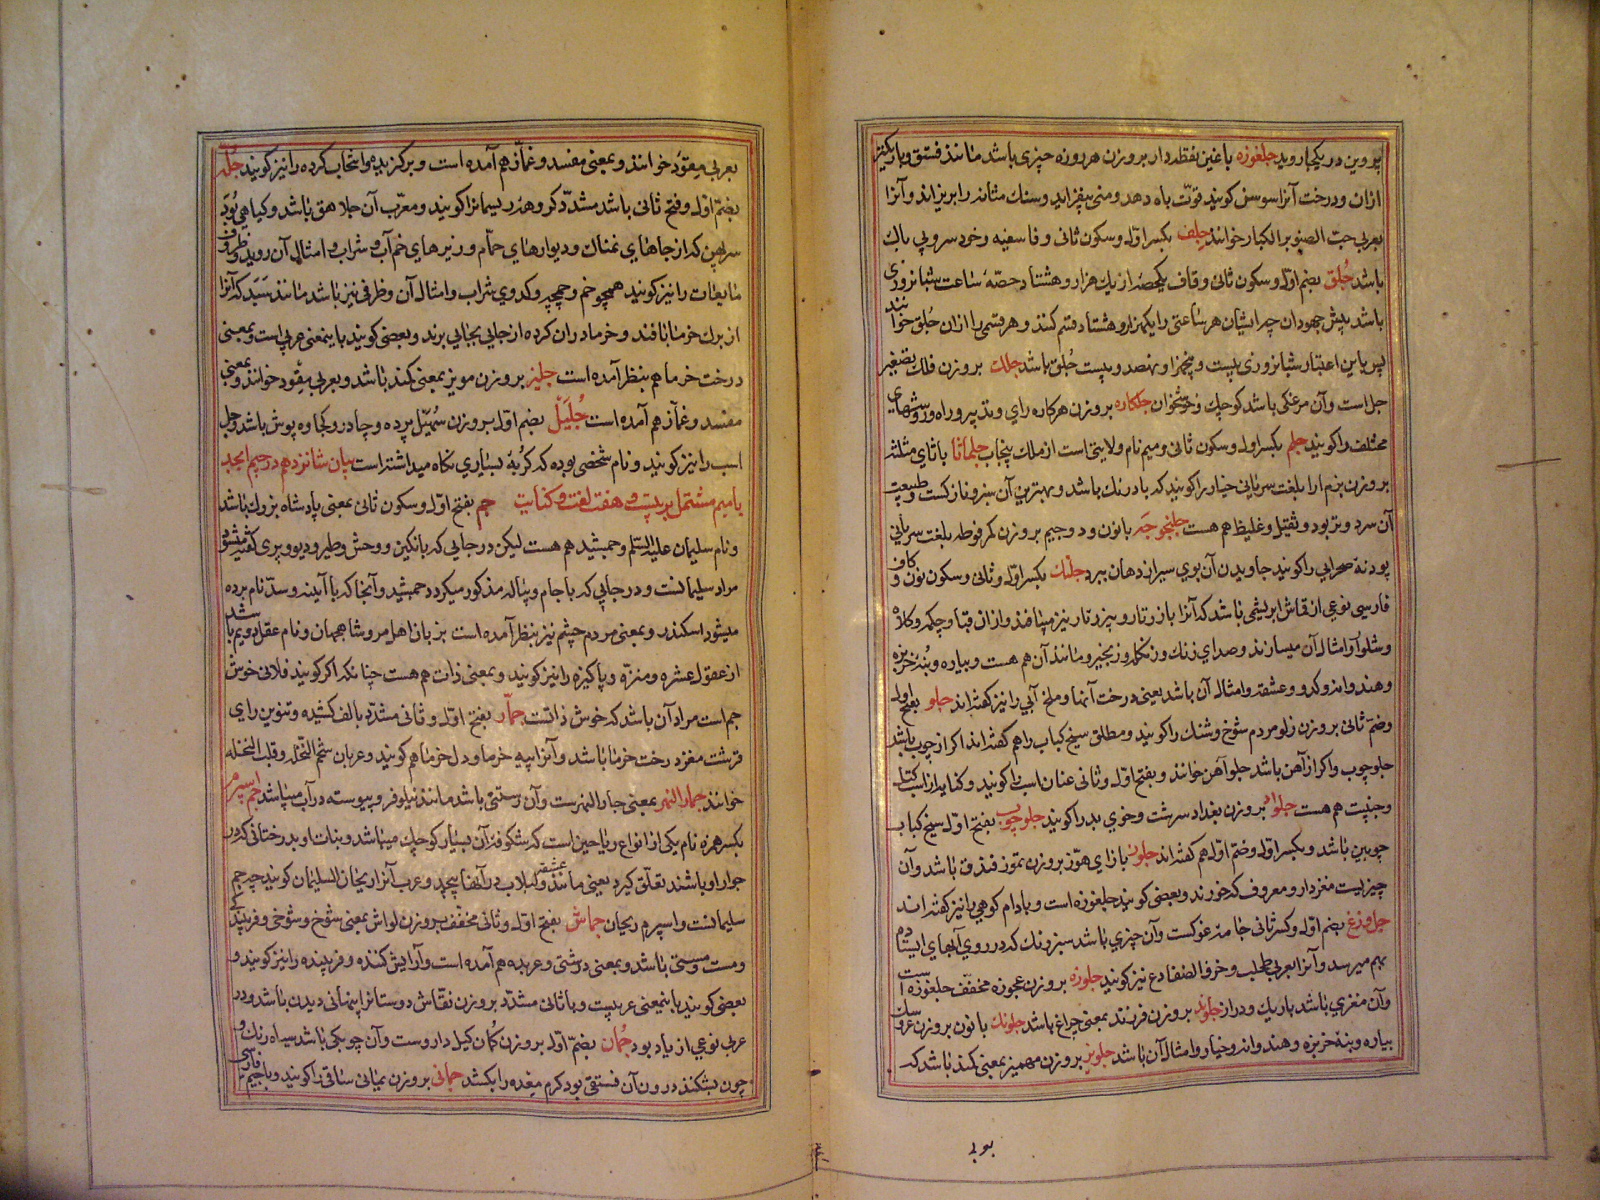 پروین در یکجا روید جلغوزه با غین نقطه‌دار بر وزن هر روزه چیزی باشد مانند فستق و باریکتر
ازان و درخت آنرا سوسن کویند قوّت باه دهد و منی بیفزاید و سنك مثانه را بریزاند و آنرا
بعربی حبّ الصنوبر الکبار خوانند جلف بکسر اوّل و سکون ثانی و فا سفیه و خودسر و بی باك
باشد جُلق بضم اوّل و سکون ثانی و قاف یکحصه از یك هزار و هشتاد حصّه ساعت شبانروزی
باشد پیش جهودان چه ایشان هر ساعتی را یکهزار و هشتاد قسم کنند و هر قسمی را ازان جُلق خوانند
پس باین اعتبار شبانروزی بیست و پنجهزار و نهصد و بیست جُلق باشد جلك بر وزن فلك تصغیر
جل است و آن مرغکی باشد کوچك و خوشخوان جلکاره بر وزن هرکاره رای و تدبیر و راه و روشهای
مختلف را کویند جلم بکسر اوّل و سکون ثانی و میم نام ولایتی است از ملك پنجاب جلماثا با ثای مثلثه
بر وزن بزم آرا بلغت سریانی خیار را کویند که بادرنك باشد و بهترین آن سبز و نازکست و طبیعت
آن سرد و تر بود و ثقیل و غلیظ هم هست جلنجوجه با نون و دو جیم بر وزن کمر فوطه بلغت سریانی
پودنهٔ صحرایی را کویند جاویدن آن بوی سیر از دهان ببرد جلنك بکسر اوّل و ثانی و سکون نون و کاف
فارسی نوعی از قماش ابریشمی باشد که آنرا با زرتار و بی زرتار نیز میبافند و ازان قبا و چکمه و کلاه
و شلوار و امثال آن میسازند و صدای زنك و زنکله و زنجیر و مانند آن هم هست و بیاره و بنه خربزه
و هندوانه و کدو و عشقه و امثال آن باشد یعنی درخت آنها و ملخ آبی را نیز کفته‌اند جلو بفتح اول
و ضم ثانی بر وزن زلو مردم شوخ و شنك را کویند و مطلق سیخ کباب را هم کفته‌اند اکر از چوب باشد
جلو چوب و اکر از آهن باشد جلو آهن خوانند و بفتح اوّل و ثانی عنان اسب را کویند و کنایه از اسب کتل
و جنیبت هم هست جلواد بر وزن بغداد سرشت و خوی بد را کویند جلو چوب بفتح اوّل سیخ کباب
چوبین باشد و بکسر اوّل و ضم اوّل هم کفته‌اند جلوز با زای هوّز بر وزن تموز فندق باشد و آن
چیزیست مغزدار و معروف که خورند و بعضی کویند جلغوزه است و بادام کوهی را نیز کفته‌اند
جل وزغ بضم اوّل و کسر ثانی جامه غوکست و آن چیزی باشد سبز رنك که در روی آبهای ایستاده
بهم میرسد و آنرا بعربی طحلب و خرؤ الضفادع نیز کویند جلوزه بر وزن عجوزه مخفّف جلغوزه است
و آن مغزی باشد باریك و دراز جلوند بر وزن فرزند بمعنی چراغ باشد جلونك با نون بر وزن عروسك
بیاره و بنه خربزه و هندوانه و خیار و امثال آن باشد جلویز بر وزن مهمیز بمعنی کمند باشد که
بعربی
بعربی مقود خوانند و بمعنی مفسد و غمّاز هم آمده است و برکزیده و انتخاب کرده را نیز کویند جُلّه
بضم اوّل و فتح ثانی باشد مشدّد کروهه ریسمانرا کویند و معرّب آن جلاهق باشد و کیاهی بُود
سر پهن که از جاهای نمناك و دیوارهای حمّام و زیرهای خم آب و شراب و امثال آن روید و ظروف
مایعات را نیز کویند همچو خم و خمچه و کدوی شراب و امثال آن و ظرفی نیز باشد مانند سبد که آنرا
از برك خرما بافند و خرما دران کرده از جایی بجایی برند و بعضی کویند باینمعنی عربی است و بمعنی
درخت خرما هم بنظر آمده است جلیز بر وزن مویز بمعنی کمند باشد و بعربی مقود خوانند و بمعنی
مفسد و غمّاز هم آمده است جُلَیل بضم اوّل بر وزن سُهیّل پرده و چادر و کجاوه پوش باشد و جل
اسب را نیز کویند و نام شخصی بوده که کربه بسیاری نکاه میداشته است بیان شانزدهم در جیم ابجد
با میم مشتمل بر بیست و هفت لغت و کنایت جم بفتح اوّل و سکون ثانی بمعنی پادشاه بزرك باشد
و نام سلیمان علیه السّلم و جمشید هم هست لیکن در جایی که با نکین و وحش و طیر و دیو و پری کفته میشود
مراد سلیمانست و در جایی که با جام و پیاله مذکور میکردد جمشید و آنجا که با آیینه و سدّ نام برده
میشود اسکندر و بمعنی مردم چشم نیز بنظر آمده است بزبان اهل مرو شاهجهان و نام عقل دویم باشد
از عقول عشره و منزّه و پاکیزه را نیز کویند و بمعنی ذات هم هست چنانکه اکر کویند فلانی خوش
جم است مراد آن باشد که خوش ذاتست جمّار بفتح اوّل و ثانی مشدّد بالف کشیده و تنوین رای
قرشت مغز درخت خرما باشد و آنرا پیه خرما و دل خرما هم کویند و عربان شحم النخل و قلب النخله
خوانند جمار النهر بمعنی جار النهرست و آن رستنی باشد مانند نیلوفر و پیوسته در آب میباشد جم اسپرم
بکسر همزه نام یکی از انواع ریاحین است که شکوفهٔ آن بسیار کوچك میباشد و بنات او بدرختانی که در
جوار او باشند تعلّق کیرد یعنی مانند عشقه و لبلاب در آنها پیچد و عرب آنرا ریحان السلیمان کویند چه جم
سلیمانست و اسپرم ریحان جماش بفتح اوّل و ثانی مخفف بر وزن لواش بمعنی شوخ و شوخی و فریبندکی
و مست و مستی باشد و بمعنی درشتی و عربده هم آمده است و آرایش کننده و فریبنده را نیز کویند و
بعضی کویند باینمعنی عربیست و با ثانی مشدّد بر وزن نقّاش دوستانرا پنهانی دیدن باشد و در
عربی نوعی از باد بود جُمان بضم اوّل بر وزن کُمان کیل داروست و آن چوبکی باشد سیاه رنك و
چون بشکنند درون آن فستقی بود کرم معده را بکشد جمانی بر وزن یمانی ساقی را کویند و با جیم فارسی